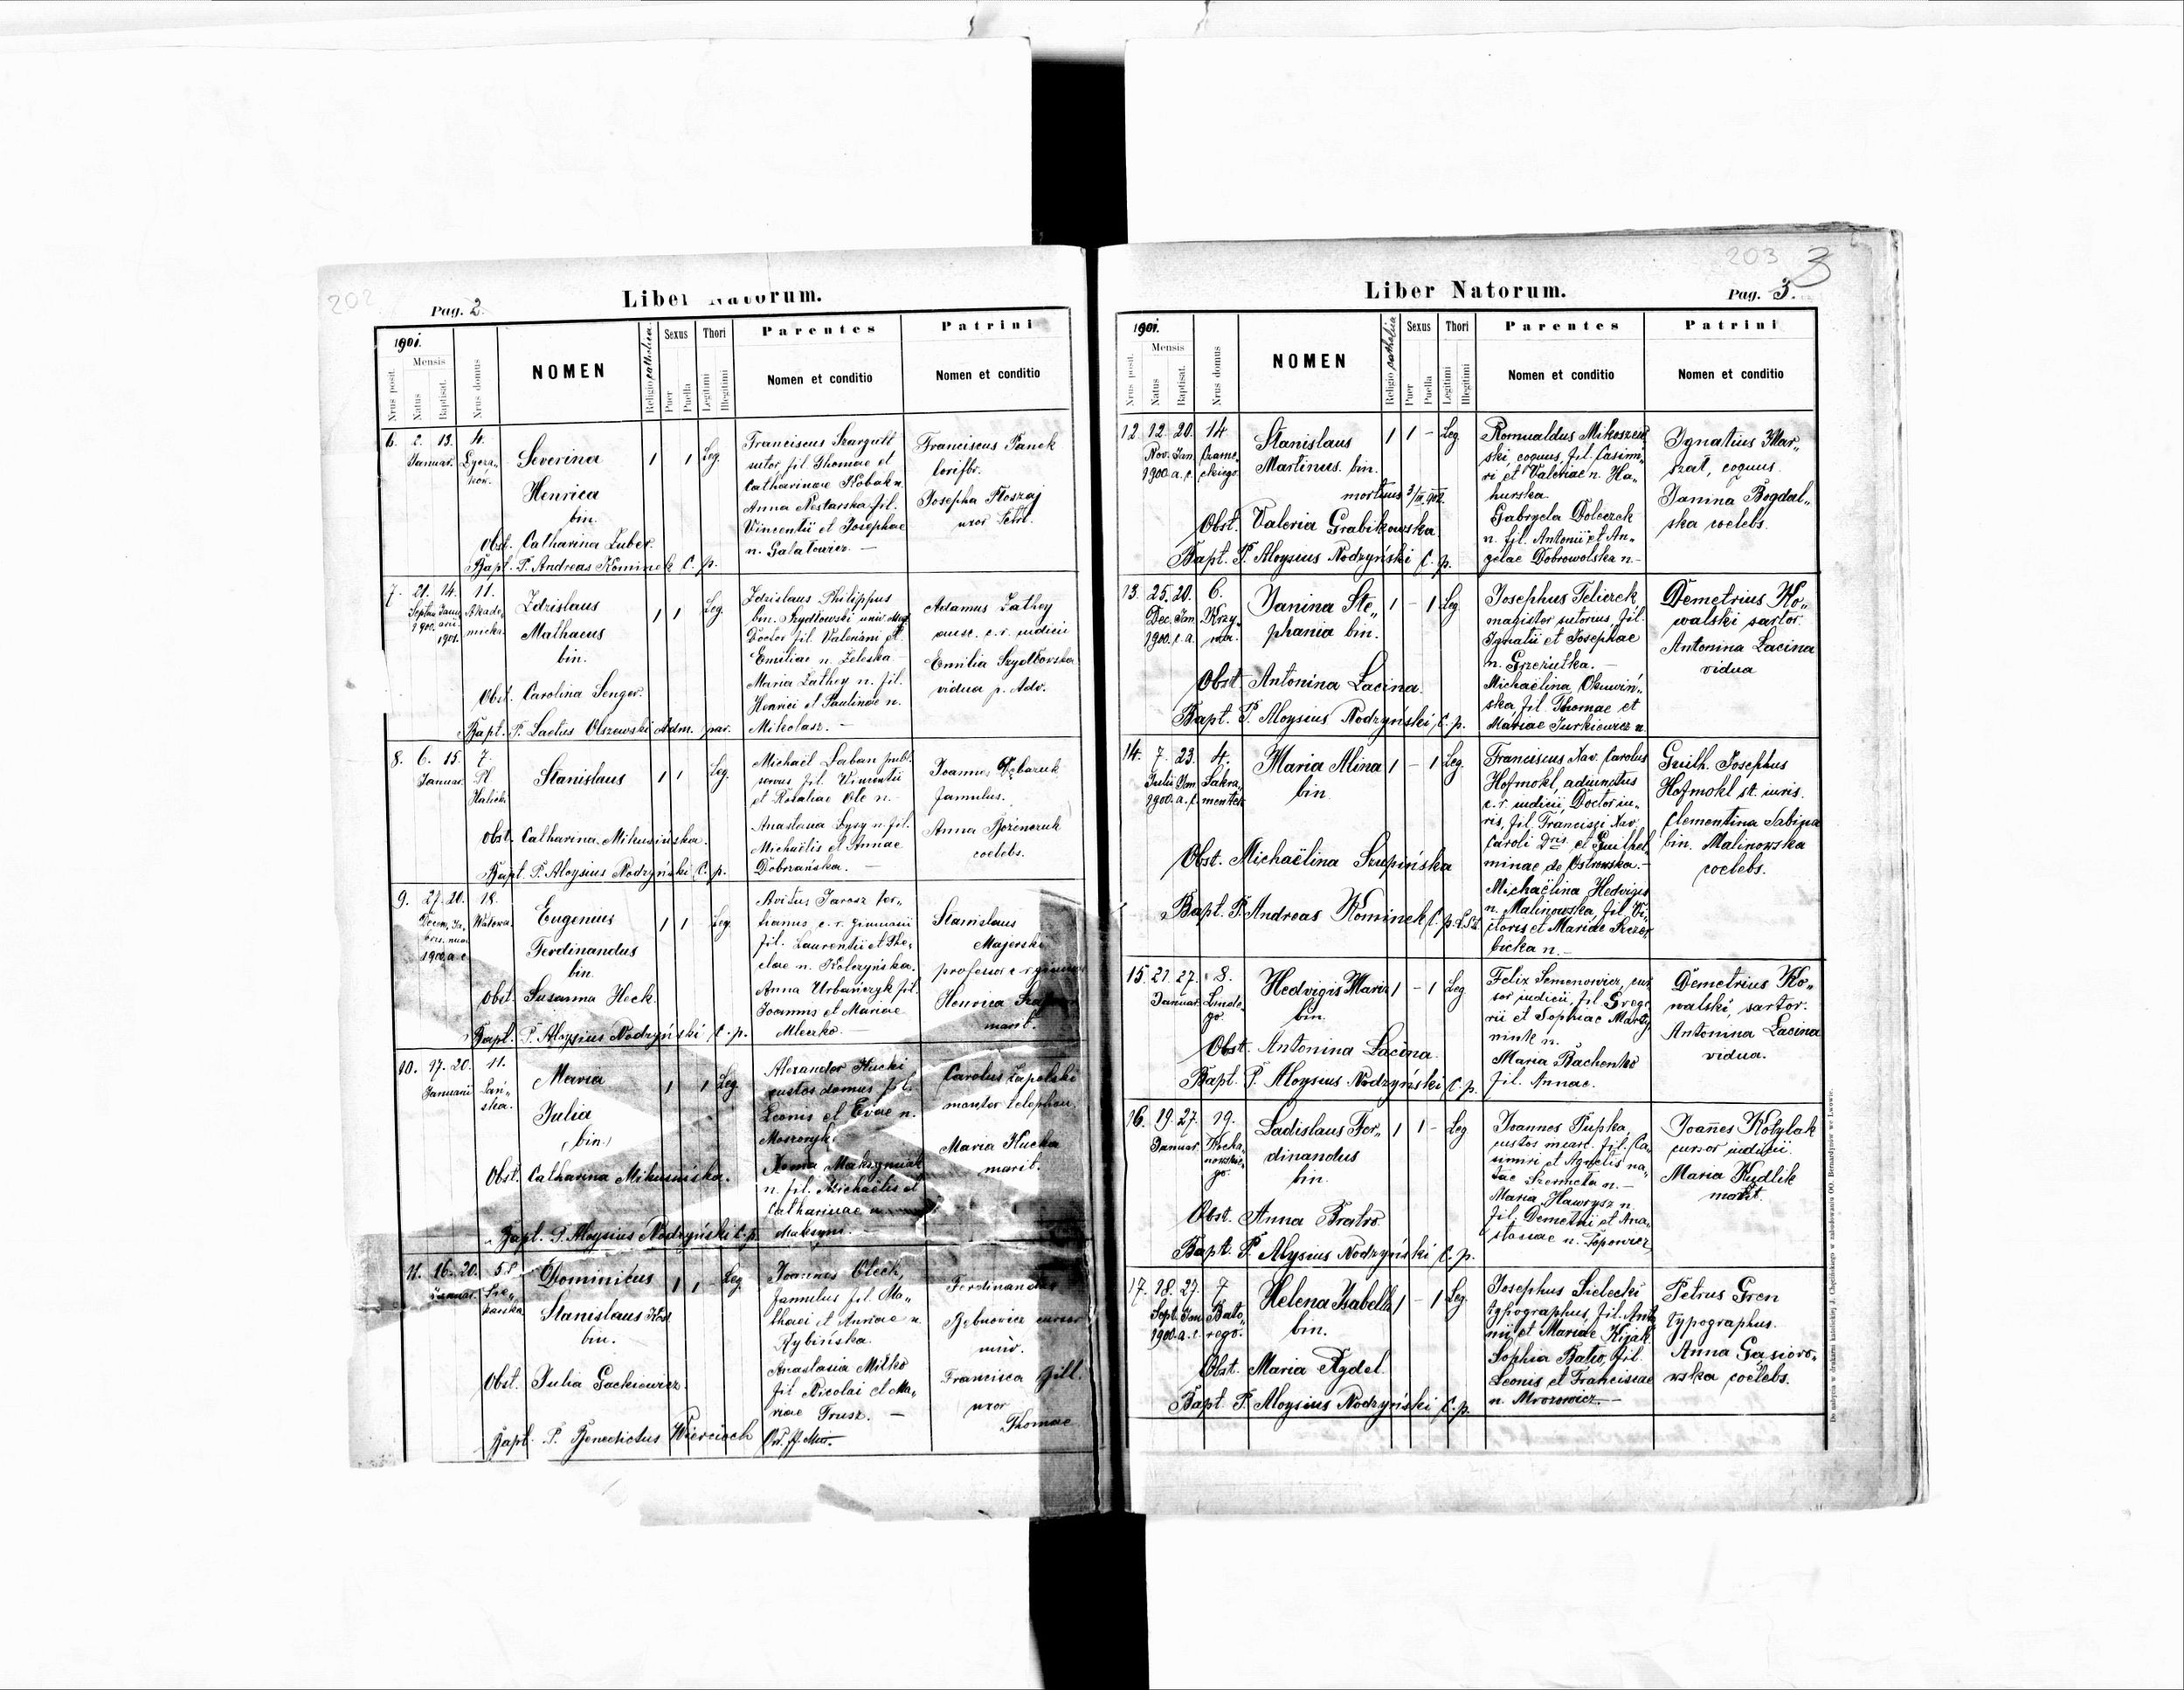 202
Liber Natorum.
Pag. 2.
1901.
Mensis
Nrus posit.
Natus
Baptisat.
Nrus domus
NOMEN
Religio catholica
Sexus
Puer
Puella
Thori
Legitimi
Illegitimi
Parentes
Nomen et conditio
Patrini
Nomen et conditio
6. 2. 13. 4.
Januar.
Severina
Henrica
bin.
1 1 Leg.
Obst. Catharina Luber.
Bapt. P. Andreas Kominek C. p.
Franciscus Szargutt
sutor fil. Thomae et
Catharinae Skobak n.
Anna Nestarska fil.
Vincentii et Josephae
n. Galatowicz. —
Franciscus Panek
Josepha Floszaj
uxor
7. 21. 14. 11.
1900. 1901.
Akade
micka
Zdzislaus
Mathaeus
bin.
1 1 Leg.
Obst. Carolina Senger.
Bapt. P. Laetus Olszewski Adm. par.
Zdzislaus Philippus
bin. Szydłowski univ. Med.
Doctor fil. Valeriani et
Emiliae n. Zeleska
Maria Lathey n. fil.
Henrici et Paulinae n.
Mikolasz. —
Adamus Lathey
ausc. c. r. judicii
Emilia Szydłowska
vidua p. Adv.
8. 6. 15. 7.
Januar.
Pl.
Halicki
Stanislaus
1 1 Leg.
Obst. Catharina Mikusińska.
Bapt. P. Aloysius Nodzyński C. p.
Michaël Laban publ.
servus fil. Vincentii
et Rosaliae Ole n. —
Anastasia Łysy n. fil.
Michaëlis et Annae
Dobrzańska. —
Joannes
famulus.
Anna Bożenczuk
coelebs.
9. 27. 20. 18.
1900. a. c.
Wałowa.
Eugenius
Ferdinandus
bin.
1 1 Leg.
Obst. Susanna Heck.
Bapt. P. Aloysius Nodzyński C. p.
Avitus Jarosz ter-
tianus c. r. gimnasii
fil. Laurentii et The-
clae n. Kolczyńska.
Anna Urbańczyk fil.
Joannis et Mariae
Mleczko. —
Stanislaus
Majerski
professor c. r.
Henrica
marit.
10. 17. 20. 11.
Januarii
Pań-
ska.
Maria
Julia
(bin.)
1 1 Leg.
Obst. Catharina Mikusińska.
Bapt. P. Aloysius Nodzyński C. p.
Alexander Hucki
custos domus fil.
Leonis et Evae n.
Moszoryk.
Maksymiak
n. fil. Michaëlis et
Catharinae n.
Maksym. —
Carolus Zapolski
montor telephon.
Maria Hucka
marit.
11. 16. 20. 58
Januar.
Dominicus
Stanislaus
bin.
1 1 - Leg.
Obst. Julia Gackiewicz.
Bapt. P. Benedictus Wiercioch Or. ff. Min.
Joannes Olech,
famulus fil. Ma-
thaei et Annae n.
Rybińska.
Anastasia Mitko
fil. Nicolai et Ma-
riae Trusz. —
Ferdinandus
cursor
univ.
Francisca Gill.
uxor
Thomae
203
3
Liber Natorum.
Pag. 3.
1901.
Mensis
Nrus posit.
Natus
Baptisat.
Nrus domus
NOMEN
Religio catholica
Sexus
Puer
Puella
Thori
Legitimi
Illegitimi
Parentes
Nomen et conditio
Patrini
Nomen et conditio
12. 12. 20. 14
Nov. Jan.
1900. a. c.
Czarne-
ckiego.
Stanislaus
Martinus. bin.
1 1 - Leg.
mortuus
Obst. Valeria Grabikowska
Bapt. P. Aloysius Nodzyński C. p.
Romualdus Mikoszew-
ski coquus, fil. Casimi-
ri et Valeriae n. Ha-
hurska.
Gabryela Doleczek
n. fil. Antonii et An-
gelae Dobrowolska n. -
Ignatius Mar-
szał, coquus.
Janina Bogdal-
ska coelebs.
13. 25. 20. 6.
Dec. Jan.
1900. c. a.
Krzy-
wa.
Janina Ste-
phania bin.
1 - 1 Leg.
Obst. Antonina Lacina.
Bapt. P. Aloysius Nodzyński C. p.
Josephus Teliczek
magister sutorius, fil.
Ignatii et Josephae
n. Grzesiutka. —
Michaëlina Okuwiń-
ska fil. Thomae et
Mariae Jurkiewicz n.
Demetrius Ko-
walski sartor.
Antonina Lacina
vidua
14. 7. 23. 4.
Julii Jan.
1900. a. c.
Sakra-
mentek
Maria Alina
bin.
1 - 1 Leg.
Obst. Michaëlina Szupińska
Bapt. P. Andreas Kominek C. p.
Franciscus Xav. Carolus
Hofmokl, adiunctus
c. r. iudicii, Doctor iu-
ris, fil. Francisci Xav.
Caroli Dris. et Guilhel-
minae de Ostrowska. —
Michaëlina Hedvigis
n. Malinowska, fil. Vi-
ctoris et Mariae
bicka n. —
Guilh. Josephus
Hofmokl st. iuris.
Clementina Sabina
bin. Malinowska
coelebs.
15. 21. 27. 8.
Januar.
Linde-
go.
Hedvigis Maria
bin.
1 - 1 Leg
Obst. Antonina Lacina.
Bapt. P. Aloysius Nodzyński C. p.
Felix Semenowicz, cur-
sor iudicii, fil. Grego-
rii et Sophiae Marty-
niuk n.
Maria Bachenko
fil. Annae.
Demetrius Ko-
walski, sartor.
Antonina Lacina
vidua.
16. 19. 27. 19.
Januar.
Kocha-
nowskie-
go.
Ladislaus Fer-
dinandus
bin.
1 1 - Leg
Obst. Anna Bratro.
Bapt. P. Alysius Nodzyński C. p.
Joannes Pupka,
custos
simiri et Agnetis na-
tae Szermeta n. —
Maria Hawrysz n.
fil. Demetrii et Ana-
stasiae n. Topowicz
Joañes Kobylak
cursor iudicii.
Maria Kudlik
marit.
17. 18. 27. 7
Sept. Jan.
1900. a. c.
Bato-
rego.
Helena Isabella
bin.
1 - 1 Leg.
Obst. Maria Rydel.
Bapt. P. Aloysius Nodzyński C. p.
Josephus Sielecki
typographus, fil. Anto-
nii et Mariae Kijak.
Sophia Batio, fil.
Leonis et Franciscae
n. Mrozowicz. —
Petrus Gren
typographus.
Anna Gąsioro-
wska coelebs.
Do nabycia w drukarni katolickiej J. Chęcińskiego w zabudowaniu OO. Bernardynów we Lwowie.